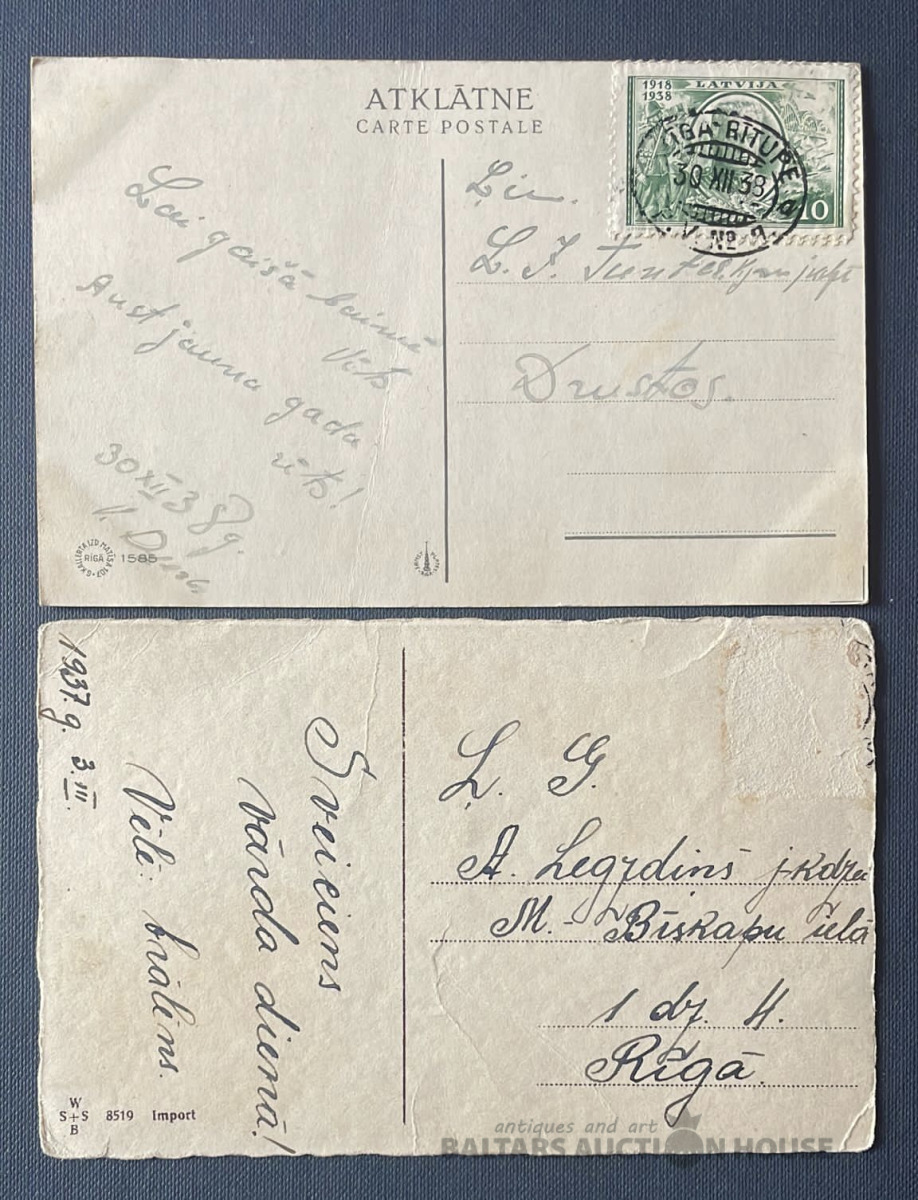 ATKLĀTNE
CARTE POSTALE
1918
1938
LATVIJA
10
RĪGA-RĪTUPE
30 XII 38
a
Nº
Lai gaišā laimē
vīts
Aust jauna gada
rīts!
30 XII 38 g.
RĪGĀ
1585
L. J.
Drustos.
1937. g. 3. III.
Sveiciens
vārda dienā!
Vēlē: brālēns.
W
S+S
B
8519 Import
Ļ. G.
A. Legzdiņš j-kdze
M. - Bīskapu ielā
1 dz. 4.
Rīgā.
antiques and art
BALTARS AUCTION HOUSE